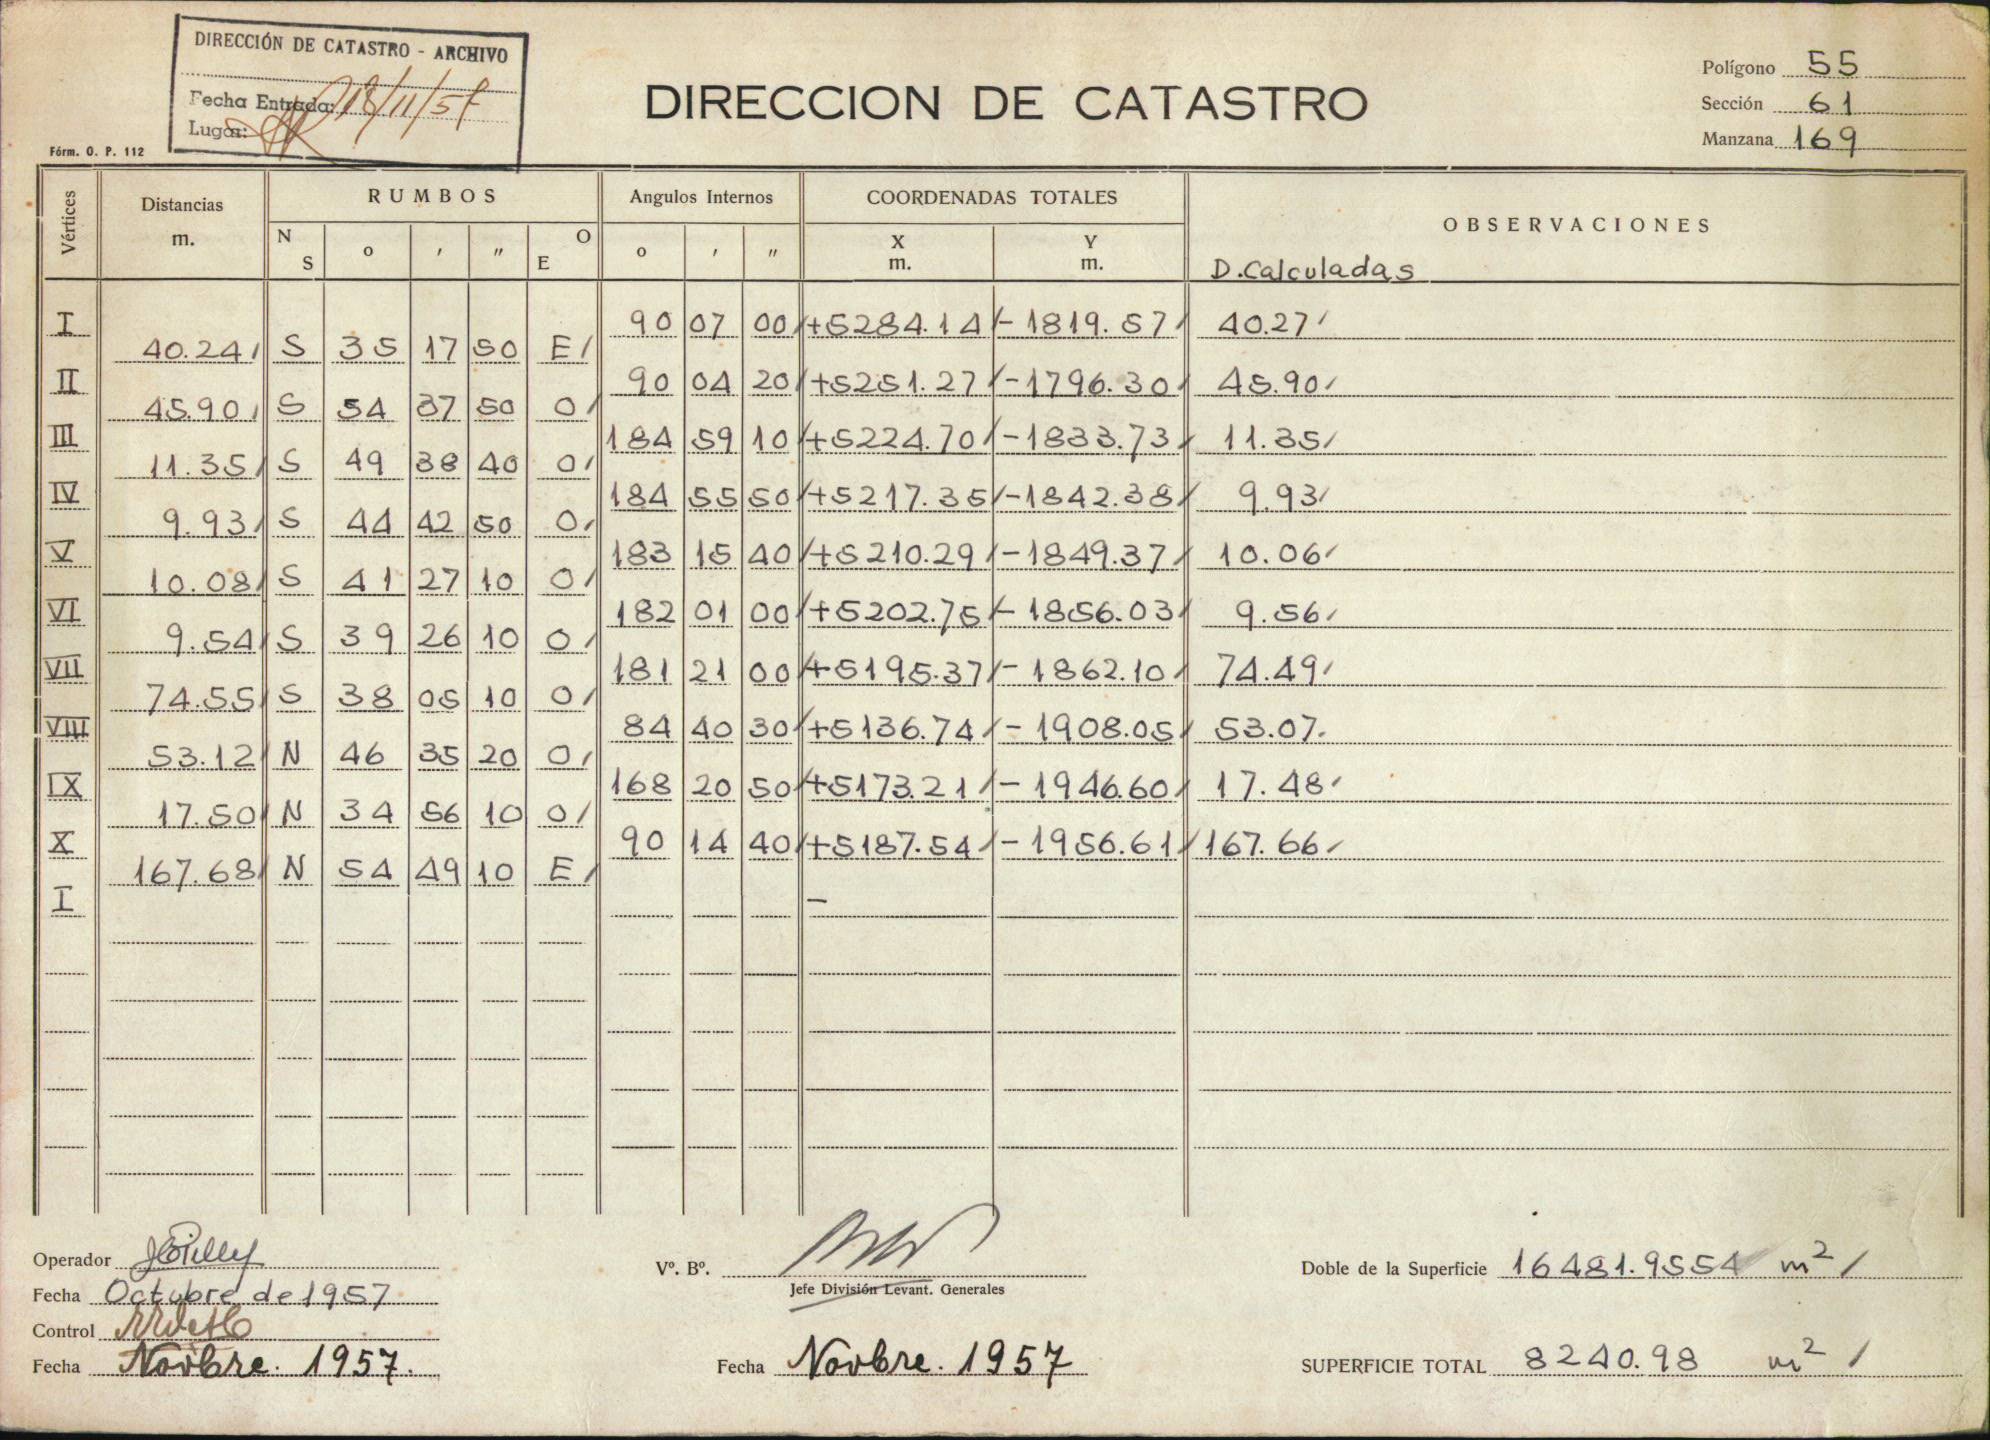 DIRECCIÓN DE CATASTRO - ARCHIVO
Fecha Entrada: 18/11/57
Lugar:
Fórm. O. P. 112
DIRECCION DE CATASTRO
Polígono 55
Sección 61
Manzana 169
Vértices Distancias m. RUMBOS N S ° ' " O E Angulos Internos ° ' " COORDENADAS TOTALES X m. Y m. OBSERVACIONES
D. Calculadas
I 90 07 00 +5284.14 -1819.57 40.27
40.24 S 35 17 50 E
II 90 04 20 +5251.27 -1796.30 45.90
45.90 S 54 37 50 O
III 184 59 10 +5224.70 -1833.73 11.35
11.35 S 49 38 40 O
IV 184 55 50 +5217.35 -1842.38 9.93
9.93 S 44 42 50 O
V 183 15 40 +5210.29 -1849.37 10.06
10.08 S 41 27 10 O
VI 182 01 00 +5202.75 -1856.03 9.56
9.54 S 39 26 10 O
VII 181 21 00 +5195.37 -1862.10 74.49
74.55 S 38 05 10 O
VIII 84 40 30 +5136.74 -1908.05 53.07
53.12 N 46 35 20 O
IX 168 20 50 +5173.21 -1946.60 17.48
17.50 N 34 56 10 O
X 90 14 40 +5187.54 -1956.61 167.66
167.68 N 54 49 10 E
I
Operador
Fecha Octubre de 1957
Control
Fecha Novbre. 1957.
Vº. Bº.
Jefe División Levant. Generales
Fecha Novbre. 1957
Doble de la Superficie 16481.9554 m²
SUPERFICIE TOTAL 8240.98 m²